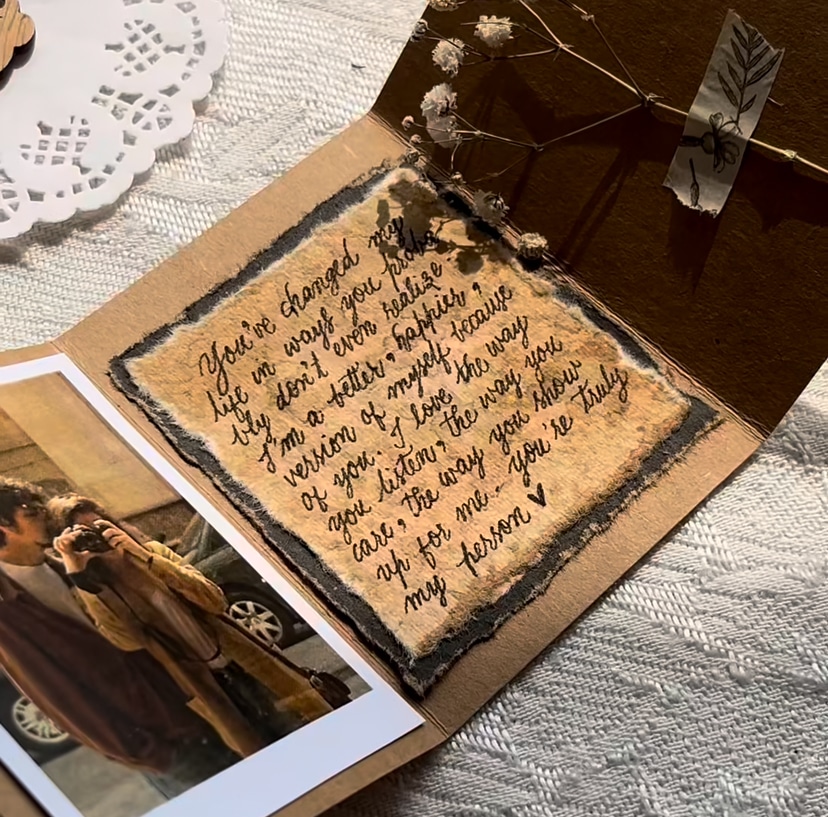 You've changed my
life in ways you proba
bly don't even realize.
I'm a better, happier,
version of myself because
of you. I love the way
you listen, the way you
care, the way you show
up for me. you're truly
my person ♥